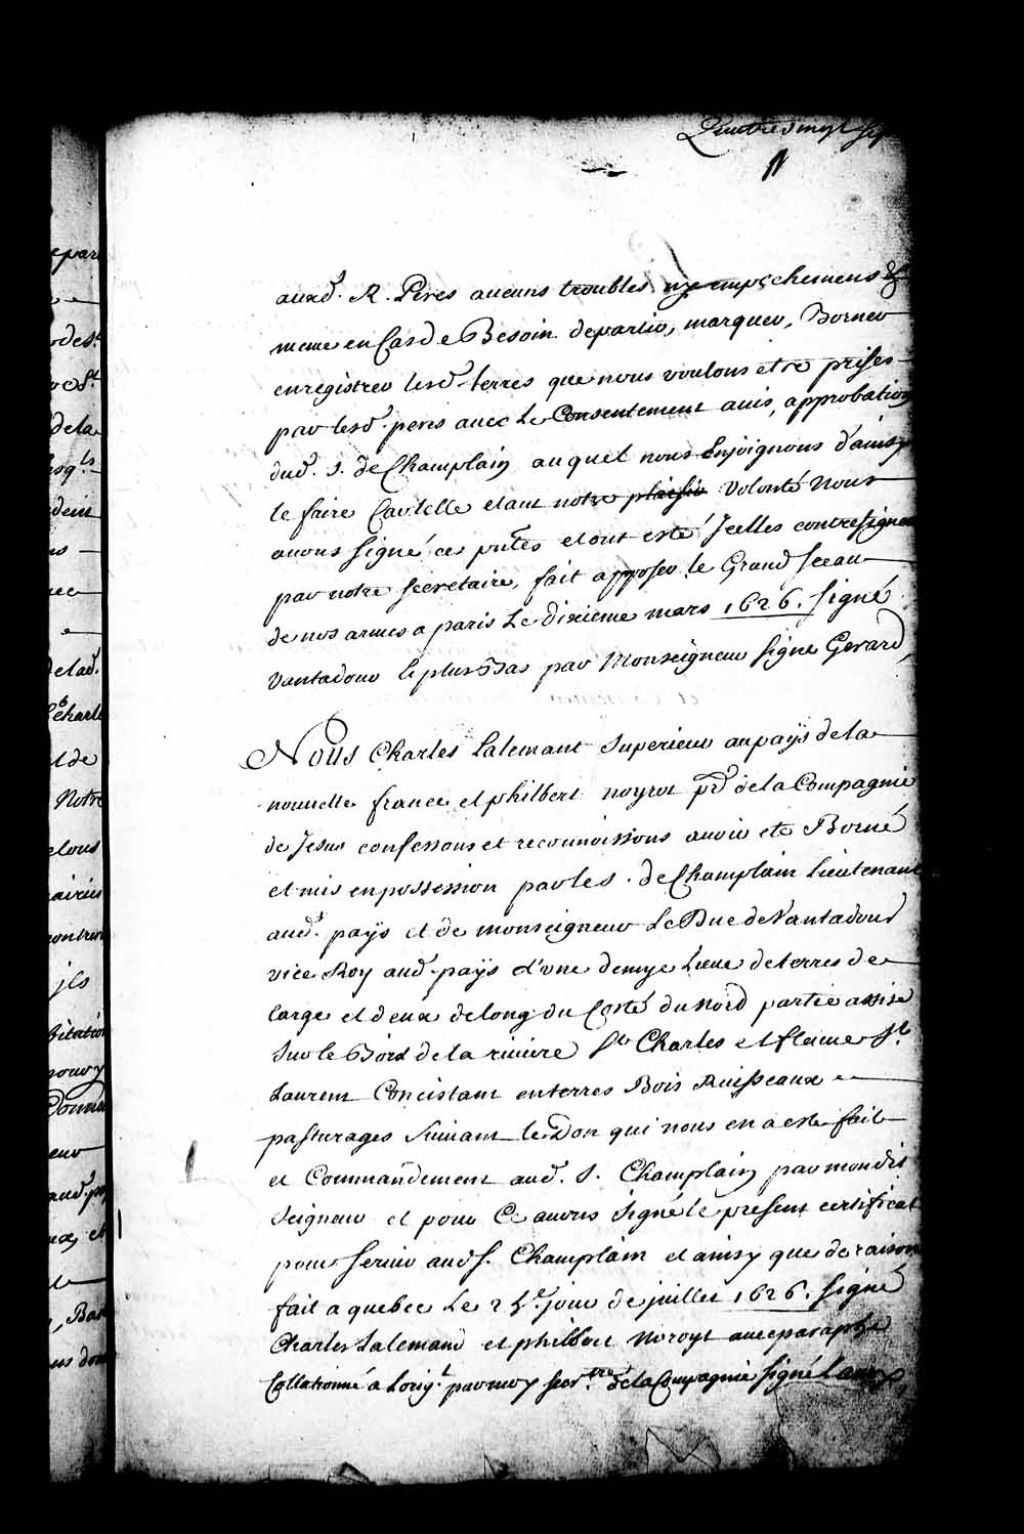 Quatre vingt sep
auxd. R. Peres aucuns troubles ny empeschemens &
meme en Cas de Besoin departir, marquer, Borner
enregistrer lesd. terres que nous voulons etre prises
par lesd. peres avec le Consentement avis, approbation
dud. S. de Champlain auquel nous Enjoignons d'ainsy
le faire Car telle etant notre plaisir Volonté Nous
avons signé ces pntes et ont esté Icelles contresigner
par notre Secretaire, fait apposer le Grand sceau
de nos armes a paris Le dixieme mars 1626. signé
Vantadour le plus Bas par Monseigneur signe Gerard,
Nous Charles Lalemant Superieur au païs de la
nouvelle france et philbert noyrot pr. de la Compagnie
de Jesus confessons et reconnoissons avoir eté Borné
et mis en possession par le s. de Champlain Lieutenant
aud. païs et de monseigneur Le Duc de Vantadour
vice Roy aud. païs d'une demye Lieue de terres de
large et deux de long du Costé du nord partie assise
sur le Bord de la riviere St. Charles et fleuve St.
Laurent Concistant en terres Bois Ruisseaux
pasturages suivant le Don qui nous en a esté fait
et Commandement aud. S. Champlain par mondit
Seigneur et pour Ce avons signé le present certificat
pour servir aud S. Champlain et ainsy que de raison
fait a quebec Le 2 e. jour de juillet 1626. signé
Charles Lalemand et philbert Noroyt avec paraphe
Collationné a Lorig.l par moy secr.tre de la Compagnie signé
epar
de la
dein
elad.
Charle
et de
Notre
jls
bitation
Donne